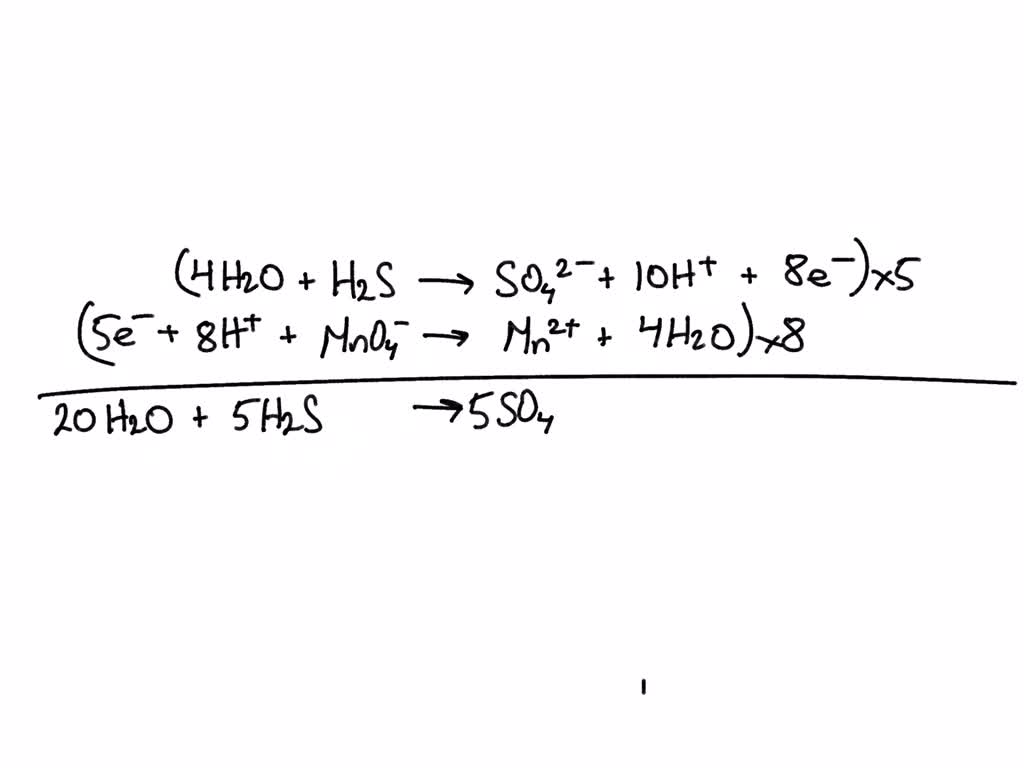 (4H₂O + H₂S → SO₄²⁻ + 10H⁺ + 8e⁻)×5
(5e⁻ + 8H⁺ + MnO₄⁻ → Mn²⁺ + 4H₂O)×8
20H₂O + 5H₂S → 5SO₄